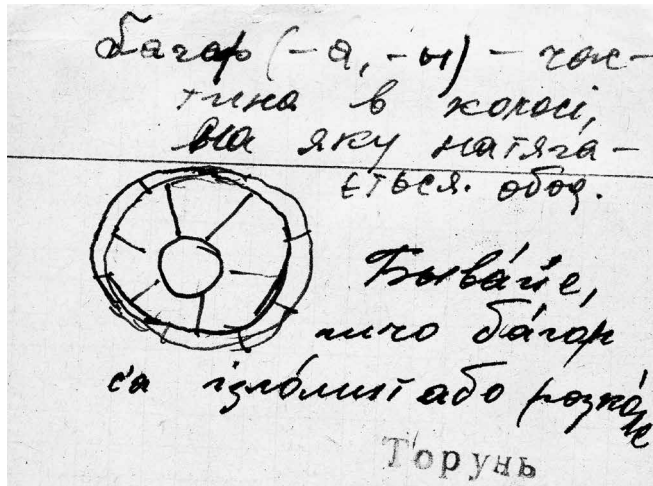 багар (-а, -ы) - час-
тина в колесі,
на яку натяга-
ється обод.
Быва́йе,
ичо ба́гар
са ізло́мит або розко́
Торунь